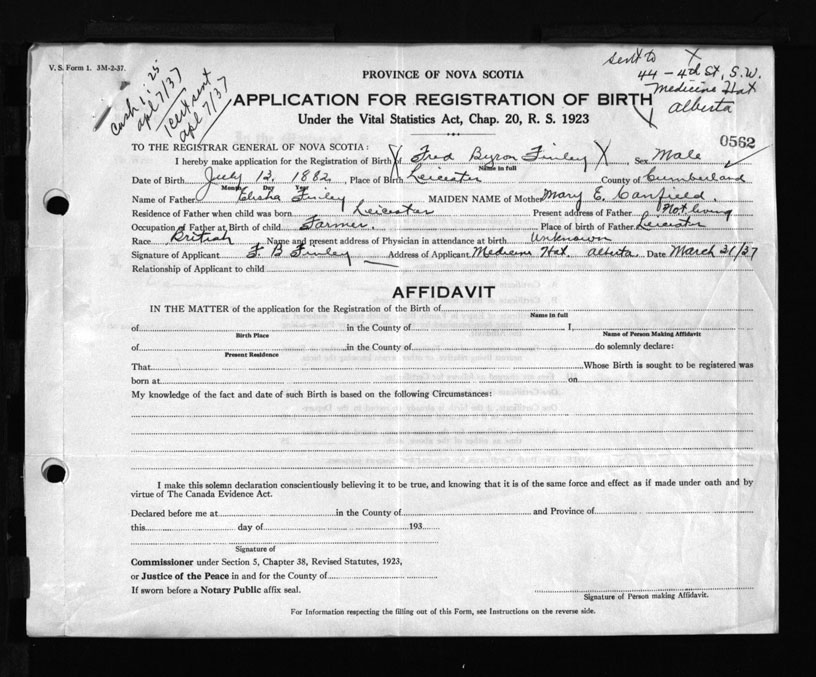 V. S. Form 1. 3M-2-37.
Cash 1.25
apl 7/37
1 cert sent
apl 7/37
sent to X
44 - 4th St, S.W.
Medicine Hat
Alberta
PROVINCE OF NOVA SCOTIA
APPLICATION FOR REGISTRATION OF BIRTH
Under the Vital Statistics Act, Chap. 20, R. S. 1923
0562
TO THE REGISTRAR GENERAL OF NOVA SCOTIA:
I hereby make application for the Registration of Birth of Fred Byron Finley X Sex Male
Name in full
Date of Birth July 12. 1882 Place of Birth Leicester County of Cumberland
Month Day Year
Name of Father Elisha Finley MAIDEN NAME of Mother Mary E. Canfield.
Residence of Father when child was born Leicester Present address of Father Not living
Occupation of Father at Birth of child Farmer. Place of birth of Father Leicester
Race British Name and present address of Physician in attendance at birth Unknown
Signature of Applicant F. B Finley Address of Applicant Medicine Hat. Alberta. Date March 31/37
Relationship of Applicant to child
AFFIDAVIT
IN THE MATTER of the application for the Registration of the Birth of
Name in full
of in the County of I,
Birth Place Name of Person Making Affidavit
of in the County of do solemnly declare:
Present Residence
That Whose Birth is sought to be registered was
born at on
My knowledge of the fact and date of such Birth is based on the following Circumstances:
I make this solemn declaration conscientiously believing it to be true, and knowing that it is of the same force and effect as if made under oath and by
virtue of The Canada Evidence Act.
Declared before me at in the County of and Province of
this day of 193
Signature of
Commissioner under Section 5, Chapter 38, Revised Statutes, 1923,
or Justice of the Peace in and for the County of
If sworn before a Notary Public affix seal.
Signature of Person making Affidavit.
For Information respecting the filling out of this Form, see Instructions on the reverse side.